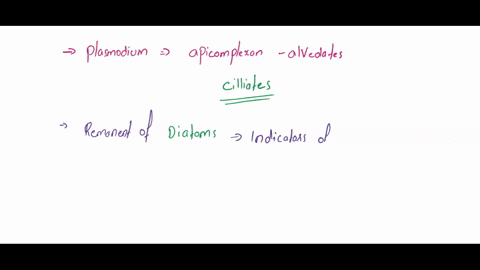 → Plasmodium ⇒ apicomplexan - alvedates
cilliates
→ Remanent of Diatoms → Indicators of